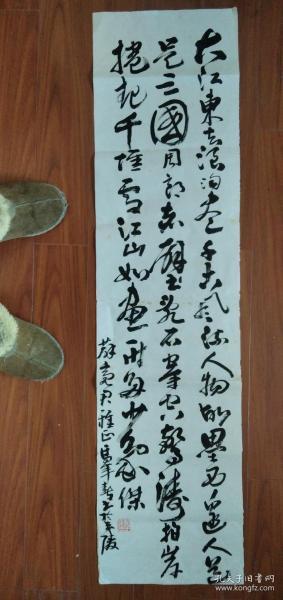 大江東去浪淘盡千古風流人物故壘西邊人道
是三國周郎赤壁亂石穿空驚濤拍岸
捲起千堆雪江山如畫一時多少豪傑
君雅正馬年
孔夫子旧书网